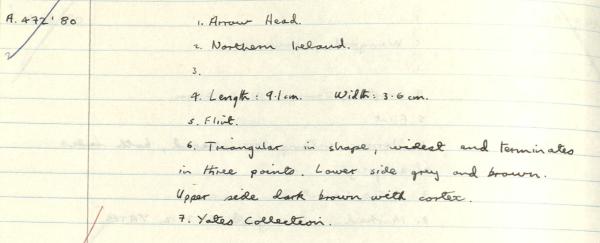 A.472'80
1. Arrow Head.
2. Northern Ireland.
3.
4. Length: 9.1cm. Width: 3.6cm.
5. Flint.
6. Triangular in shape, widest end terminates
in three points. Lower side grey and brown.
Upper side dark brown with cortex.
7. Yates Collection.